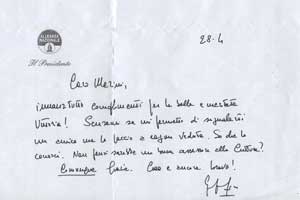 ALLEANZA
NAZIONALE
Il Presidente
28.4
Caro Marini,
innanzitutto complimenti per la bella e meritata
vittoria! Scusami se mi permetto di segnalarti
un amico ma lo faccio a ragion veduta. So che lo
conosci. Non pensi sarebbe un buon assessore alla Cultura?
Comunque Ciao e ancora bravo!